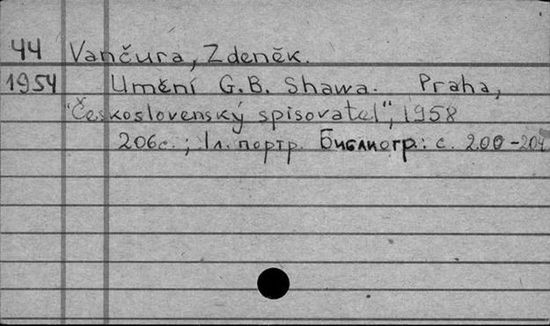 44 Vančura, Zdeněk.
1954 Umění G.B. Shawa. Praha,
"Československý spisovatel", 1958
206с.; 1л. портр. Библиогр.: с. 200-204